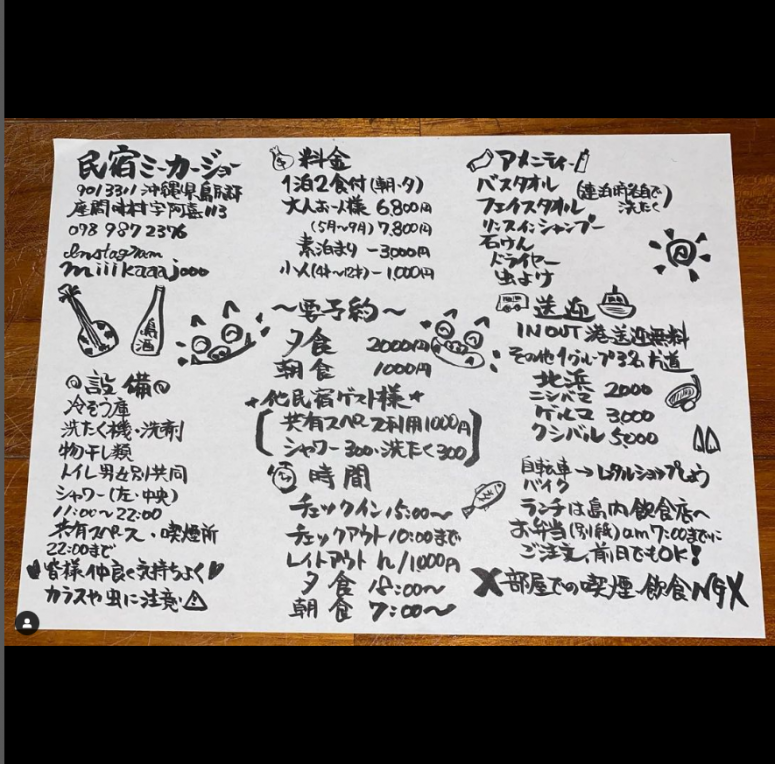 民宿ミーカージョー
9013311 沖縄県島尻郡
座間味村字阿嘉113
098 987 2376
Instagram
miiikaaajooo
島酒
設備
冷ぞう庫
洗たく機・洗剤
物干し類
トイレ男女別共同
シャワー(左・中央)
11:00〜22:00
共有スペース・喫煙所
22:00まで
皆様仲良く気持ちよく
カラスや虫に注意
料金
1泊2食付(朝・夕)
大人お一人様 6,800円
(5月〜9月) 7,800円
素泊まり −3,000円
小人(4才〜12才)−1,000円
〜要予約〜
夕食 2000円
朝食 1000円
★他民宿ゲスト様★
共有スペース利用1000円
シャワー300・洗たく300
時間
チェックイン 15:00〜
チェックアウト 10:00まで
レイトアウト h/1000円
夕食 18:00〜
朝食 7:00〜
アメニティー
バスタオル
フェイスタオル
(連泊時各自で洗たく)
リンスインシャンプー
石けん
ドライヤー
虫よけ
送迎
IN OUT 港送迎無料
その他1グループ3名片道
北浜
ニシバマ 2000
ゲルマ 3000
クシバル 5,000
自転車→レンタルショップしょう
バイク
ランチは島内飲食店へ
お弁当(別紙)am7:00までに
ご注文、前日でもOK!
X 部屋での喫煙 飲食 NG X